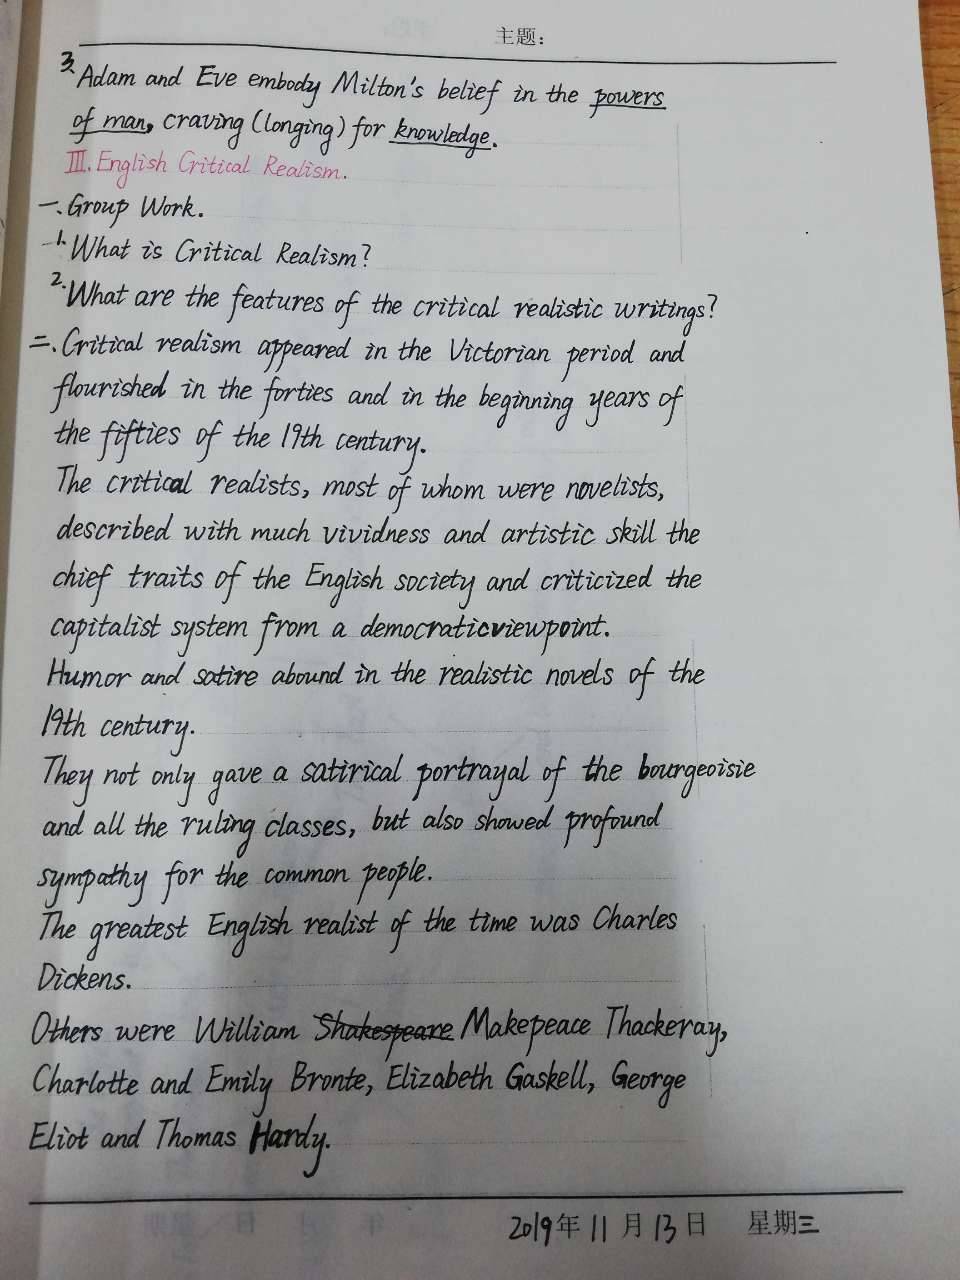 主题：
3. Adam and Eve embody Milton's belief in the powers
of man, craving (longing) for knowledge.
III. English Critical Realism.
一、Group Work.
1. What is Critical Realism?
2. What are the features of the critical realistic writings?
二、Critical realism appeared in the Victorian period and
flourished in the forties and in the beginning years of
the fifties of the 19th century.
The critical realists, most of whom were novelists,
described with much vividness and artistic skill the
chief traits of the English society and criticized the
capitalist system from a democraticviewpoint.
Humor and satire abound in the realistic novels of the
19th century.
They not only gave a satirical portrayal of the bourgeoisie
and all the ruling classes, but also showed profound
sympathy for the common people.
The greatest English realist of the time was Charles
Dickens.
Others were William Shakespeare Makepeace Thackeray,
Charlotte and Emily Bronte, Elizabeth Gaskell, George
Eliot and Thomas Hardy.
2019年11月13日 星期三